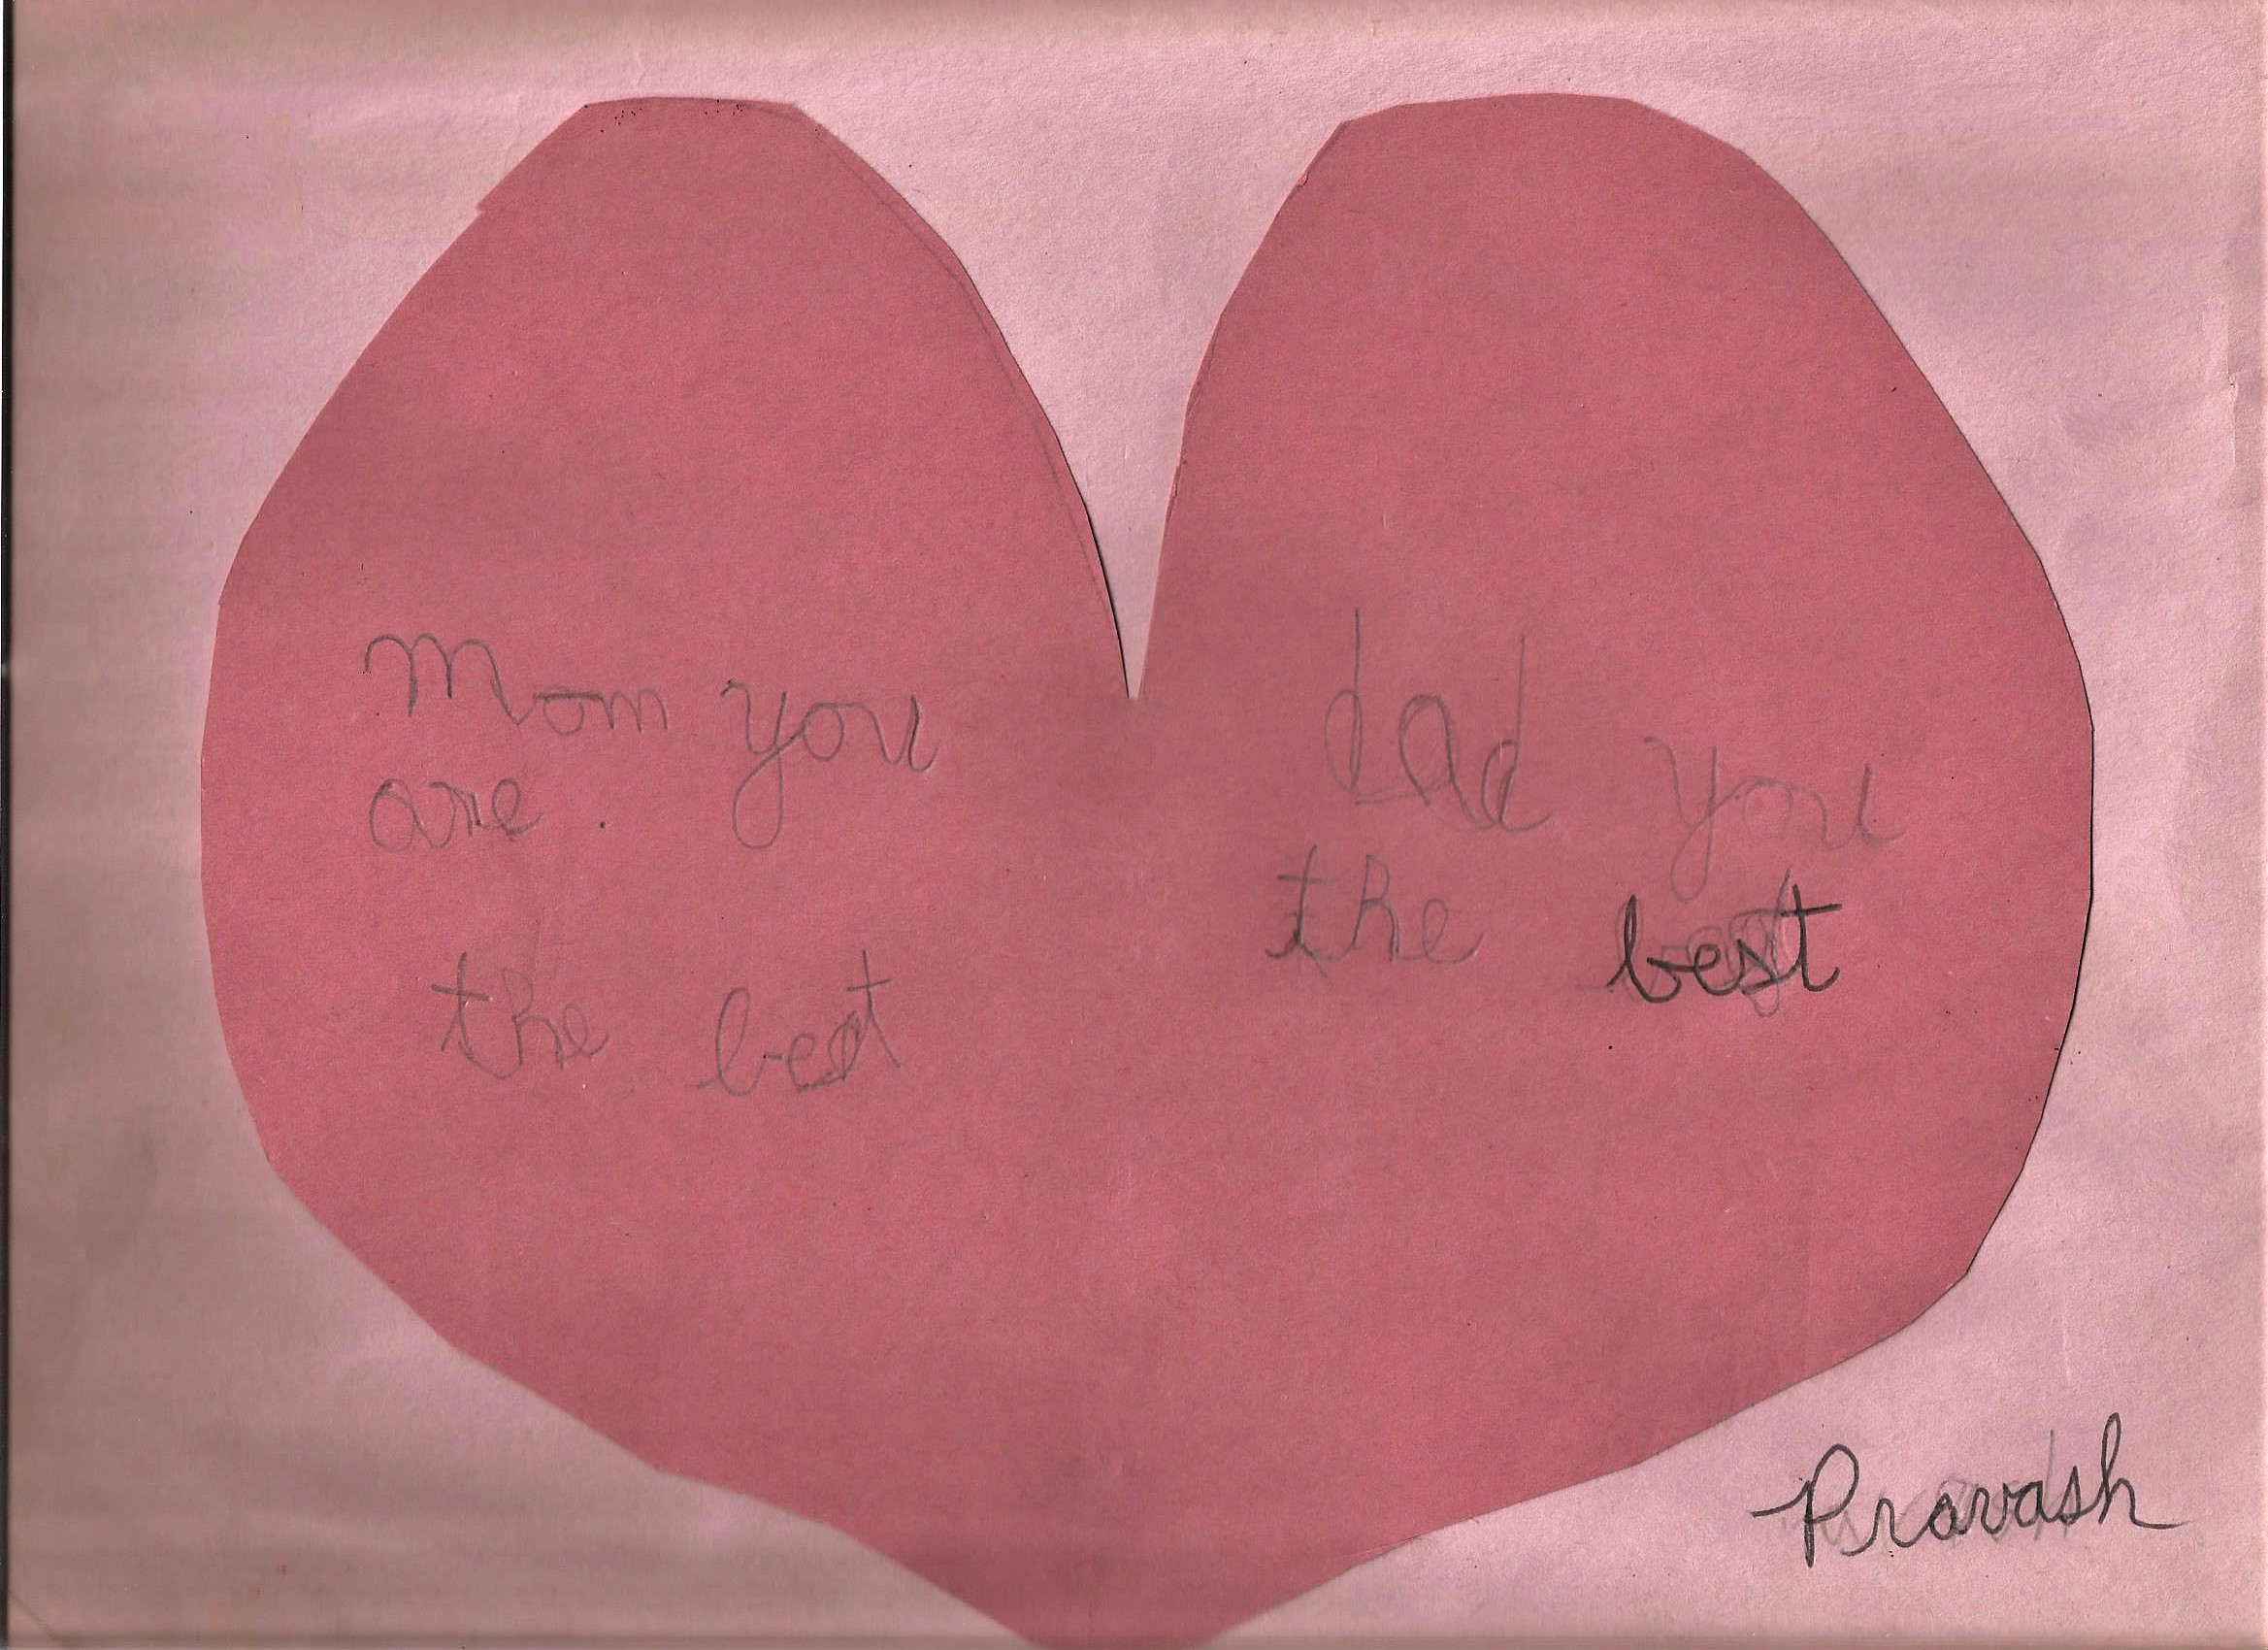 Mom you
are
the best
dad you
the best
Pravash